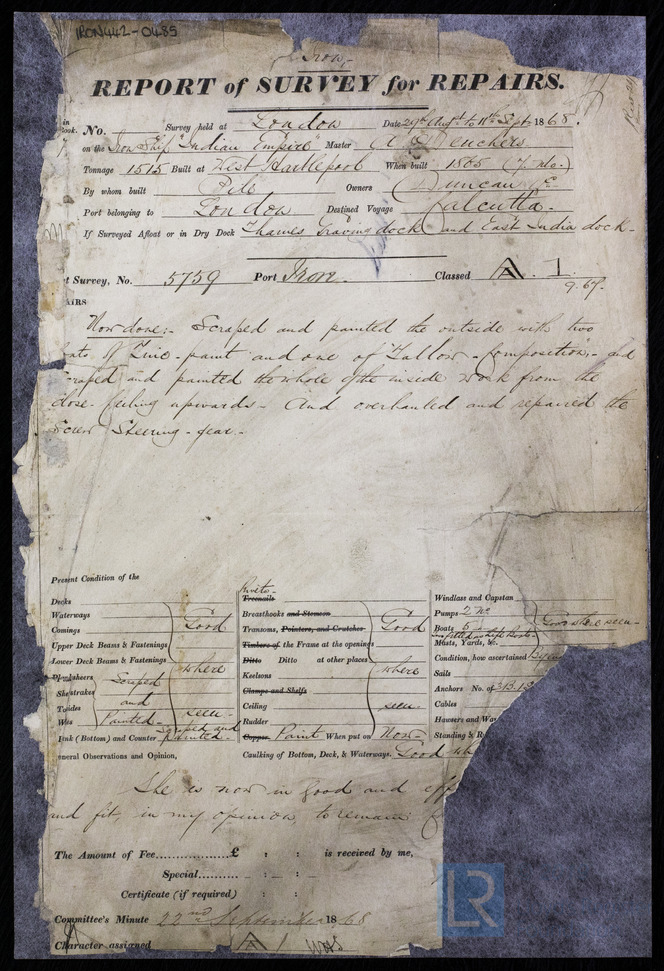 IRON442-0485
Iron,
REPORT of SURVEY for REPAIRS.
No. Survey held at London Date 29th Augt to 11th Sept 1868.
on the Iron Ship Indian Empire Master
Tonnage 1515 Built at West Hartlepool When built 1865 (7. mo.)
By whom built Pile Owners Duncan & Co
Port belonging to London Destined Voyage Calcutta.
If Surveyed Afloat or in Dry Dock Thames Graving dock and East India dock.
t Survey, No. 5759 Port Iron. Classed A. 1.
9.67.
AIRS
Now done:- Scraped and painted the outside with two
oats of Zinc-paint and one of Tallow-composition,- and
scraped and painted the whole of the inside work from the
close-ceiling upwards- And overhauled and repaired the
Screw Steering-gear.-
Present Condition of the
Decks
Waterways
Comings
Upper Deck Beams & Fastenings
Lower Deck Beams & Fastenings
Good where seen
Plansheers
Sheetrakes
Tosides
Wes
Scraped and Painted
ink (Bottom) and Counter Scraped and painted.
eneral Observations and Opinion,
Rivets
Treenails
Breasthooks and Stemson
Transoms, Pointers, and Crutches
Timbers of the Frame at the openings
Ditto Ditto at other places
Keelsons
Clamps and Shelfs
Ceiling
Rudder
Good where seen
Copper Paint When put on Now
Caulking of Bottom, Deck, & Waterways. Good wh
Windlass and Capstan
Pumps 2 No
Boats 5
Masts, Yards, &c.
Condition, how ascertained
Sails
Anchors No. of 3B.1S
Cables
Hawsers and Wa
Standing & R
Good where seen
She is now in good and eff
and fit, in my opinion, to remain
The Amount of Fee............... £ : : is received by me,
Special.......... : :
Certificate (if required) : :
Committee's Minute 22nd September 1868
Character assigned A 1
LR